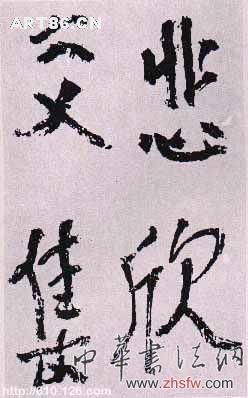 悲欣
交集
ART86.CN
中華書法网
http://610.126.com
www.zhsfw.com